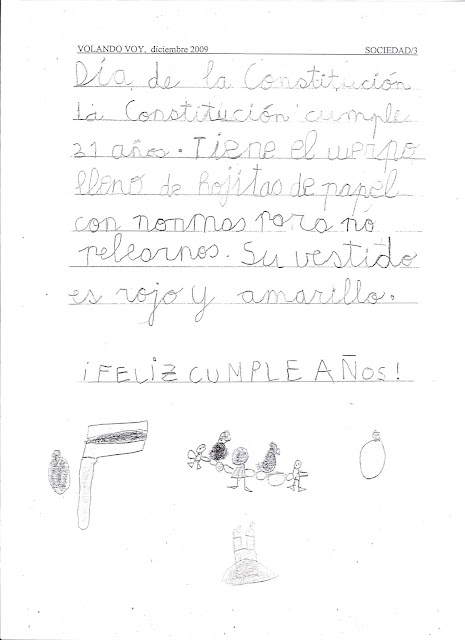 VOLANDO VOY, diciembre 2009 SOCIEDAD/3
Día de la Constitución
la Constitución cumple
31 años. Tiene el uerpo
lleno de hojitas de papel
con normas para no
pelearnos. Su vestido
es rojo y amarillo.
¡FELIZ CUMPLEAÑOS!